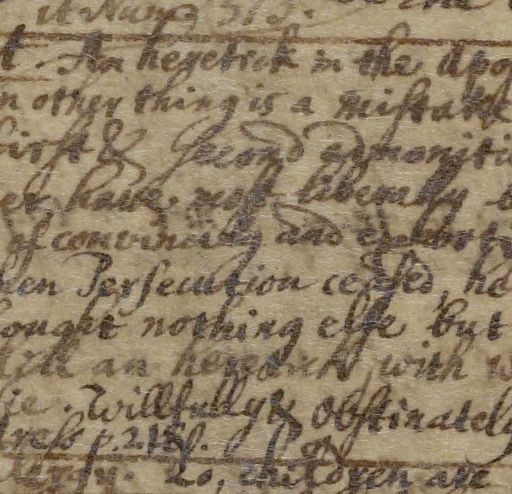 t. An heretick in the Apo
n other thing is a mistake
first & Second admoniti
er have most liberally b
of convincing and exhorti
hen Persecution ceased, ha
ought nothing else but
still an heretick, with w
sie. Willfully & obstinately
ress p. 218.
20, children are